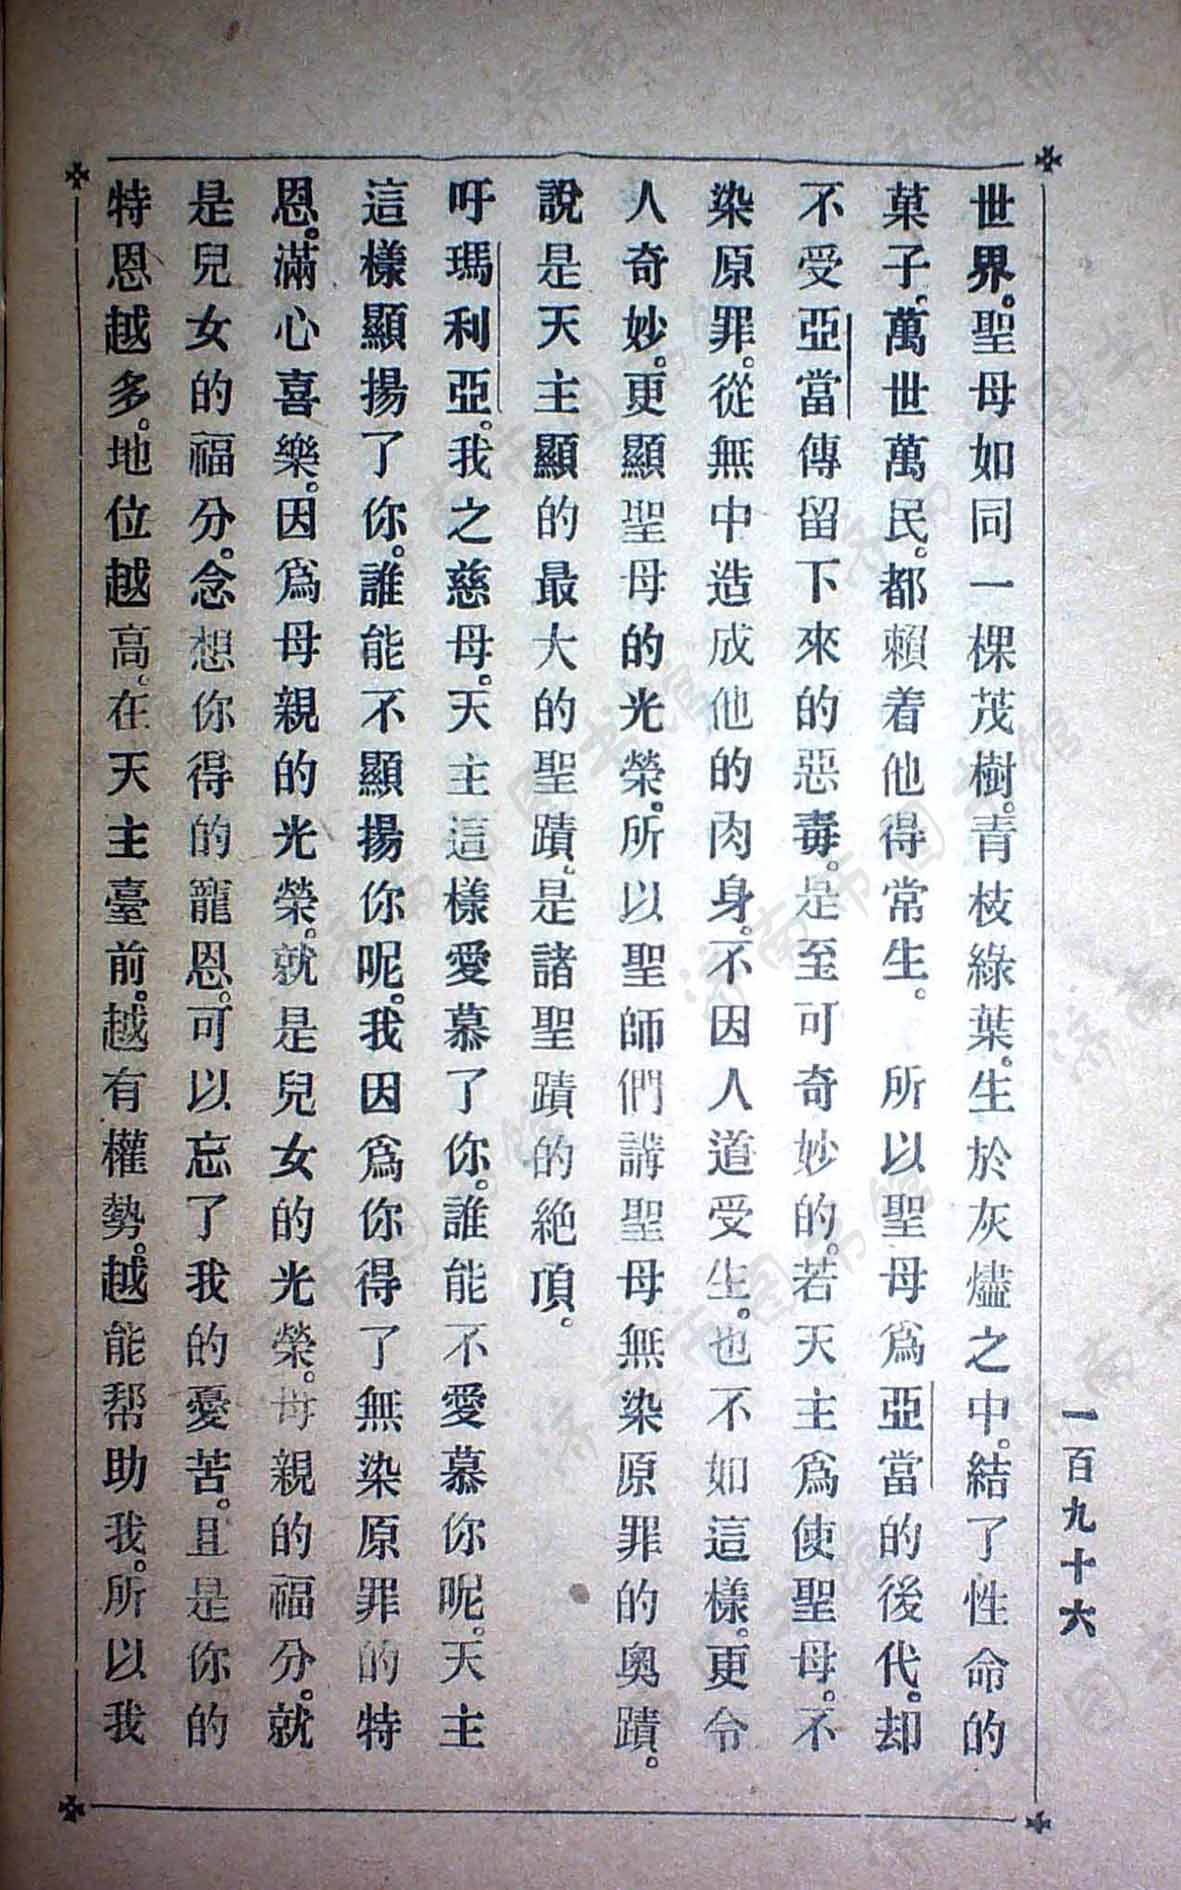 世界。聖母如同一棵茂樹。青枝綠葉。生於灰燼之中。結了性命的
菓子。萬世萬民。都賴着他得常生。　所以聖母爲亞當的後代。却
不受亞當傳留下來的惡毒。是至可奇妙的。若天主爲使聖母。不
染原罪。從無中造成他的肉身。不因人道受生。也不如這樣。更令
人奇妙。更顯聖母的光榮。所以聖師們講聖母無染原罪的奧蹟。
說是天主顯的最大的聖蹟。是諸聖蹟的絕頂。
吁瑪利亞。我之慈母。天主這樣愛慕了你。誰能不愛慕你呢。天主
這樣顯揚了你。誰能不顯揚你呢。我因爲你得了無染原罪的特
恩。滿心喜樂。因爲母親的光榮。就是兒女的光榮。母親的福分。就
是兒女的福分。念想你得的寵恩。可以忘了我的憂苦。且是你的
特恩越多。地位越高。在天主臺前。越有權勢。越能帮助我。所以我
一百九十六
济南市图书馆